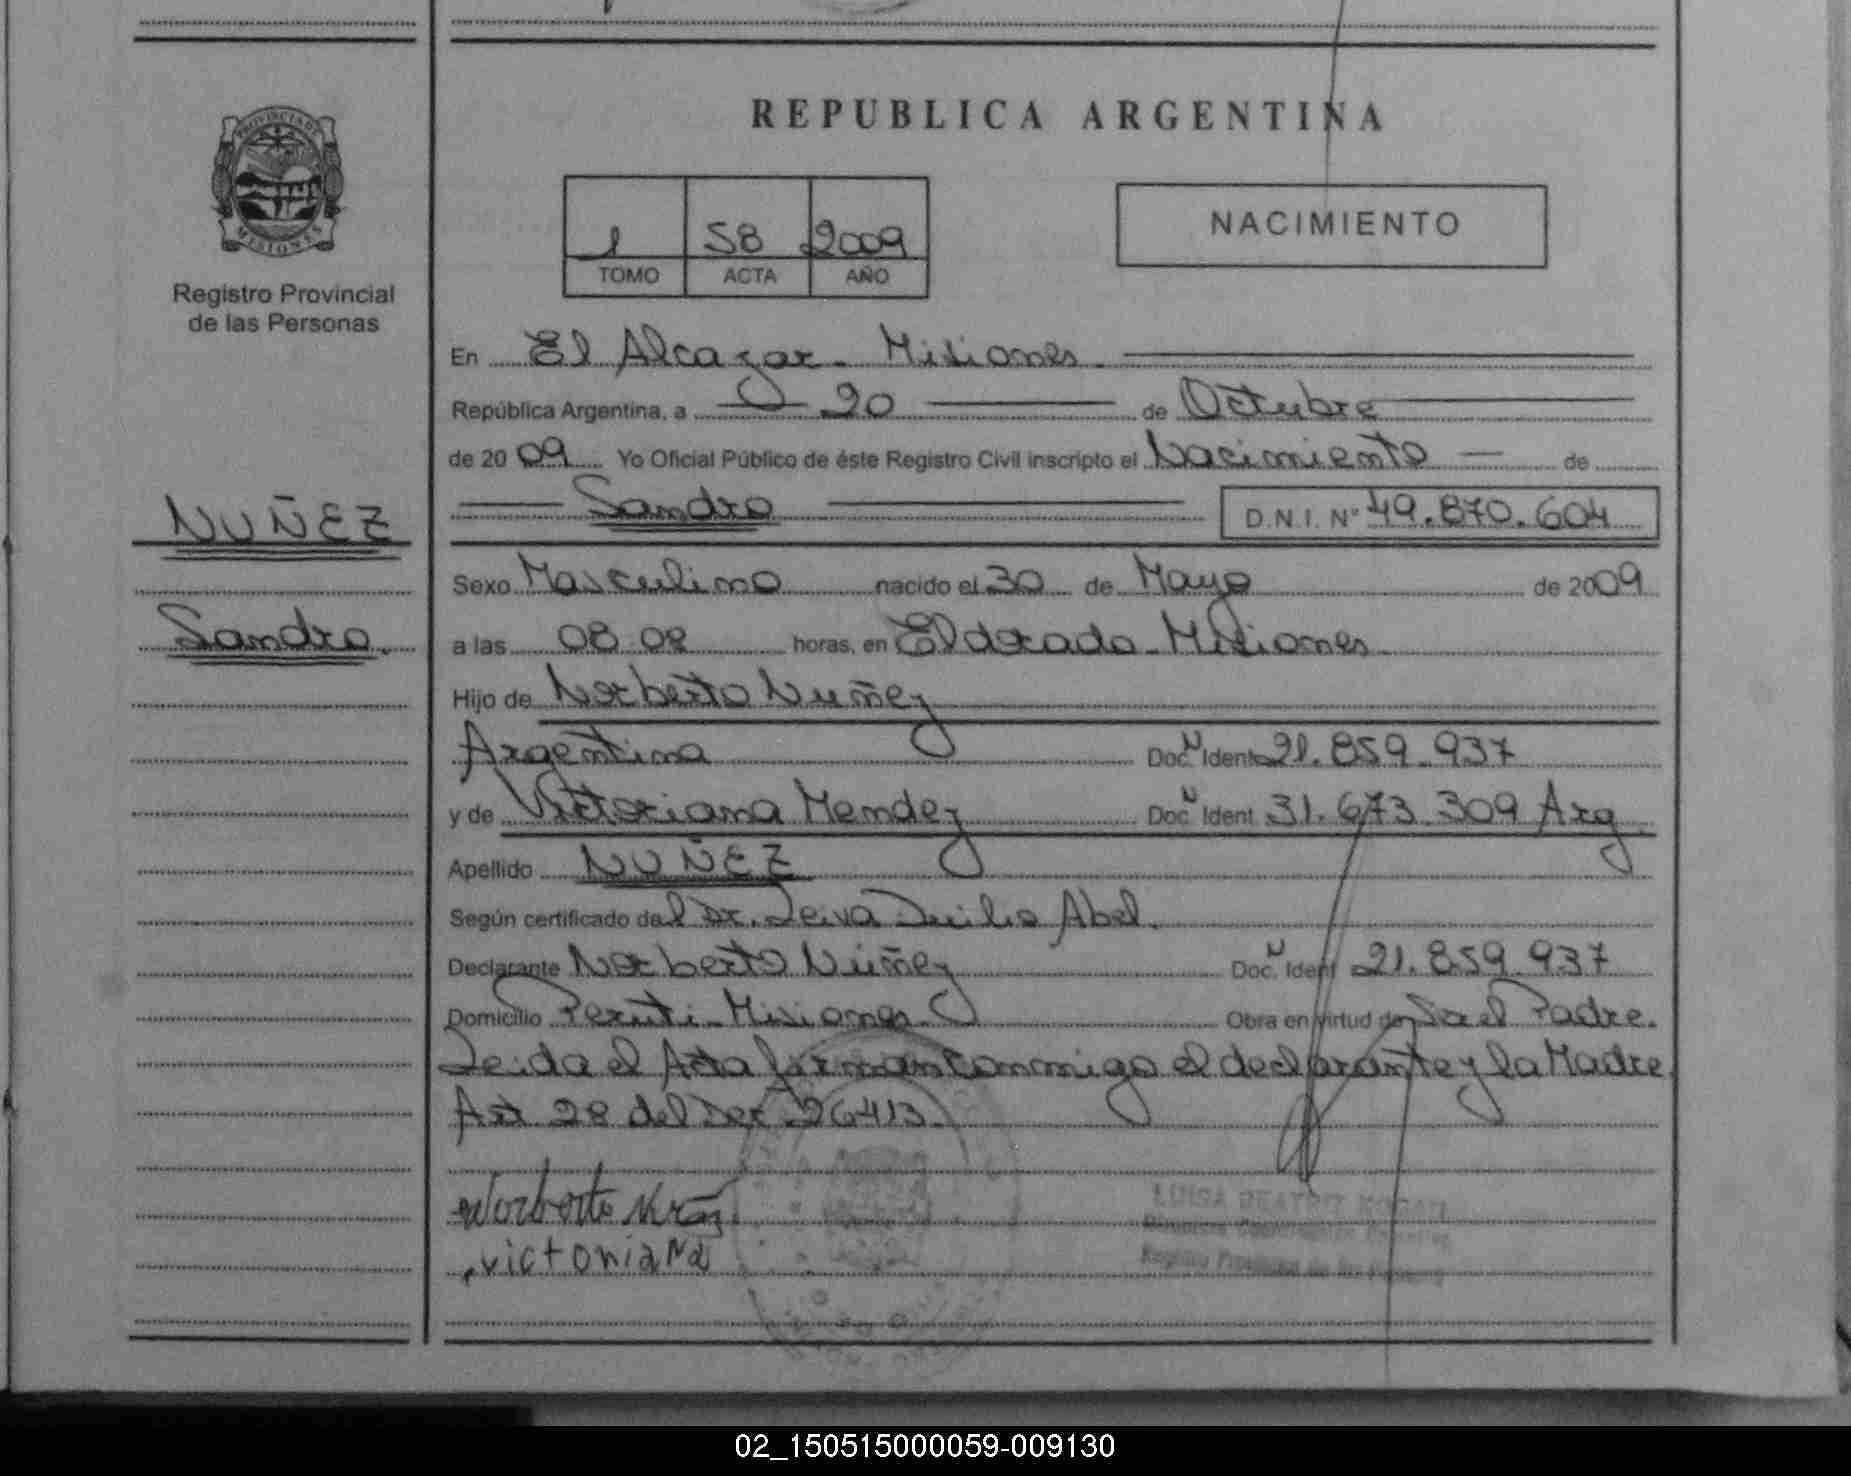 REPUBLICA ARGENTINA
PROVINCIA DE
MISIONES
Registro Provincial
de las Personas
1 58 2009
TOMO ACTA AÑO
NACIMIENTO
En El Alcazar - Misiones
República Argentina, a 20 de Octubre
de 2009 Yo Oficial Público de éste Registro Civil inscripto el Nacimiento de
Sandro D.N.I. Nº 49.870.604
NUÑEZ
Sandro.
Sexo Masculino nacido el 30 de Mayo de 2009
a las 08:08 horas, en Eldorado - Misiones
Hijo de Norberto Nuñez
Argentina Doc. N Ident 21.859.937
y de Victoriana Mendez Doc. N Ident 31.673.309 Arg
Apellido NUÑEZ
Según certificado del Dr. Leiva Abel.
Declarante Norberto Nuñez Doc. N Ident 21.859.937
Domicilio Peruti - Misiones Obra en virtud de Ser el Padre.
Leida el Acta firman conmigo el declarante y la Madre
Art 28 del 26413.
Norberto
victoriana
LUISA BEATRIZ
02_150515000059-009130